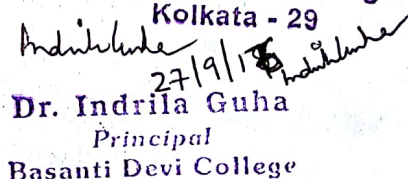 Kolkata - 29
27/9/1
Dr. Indrila Guha
Principal
Basanti Devi College